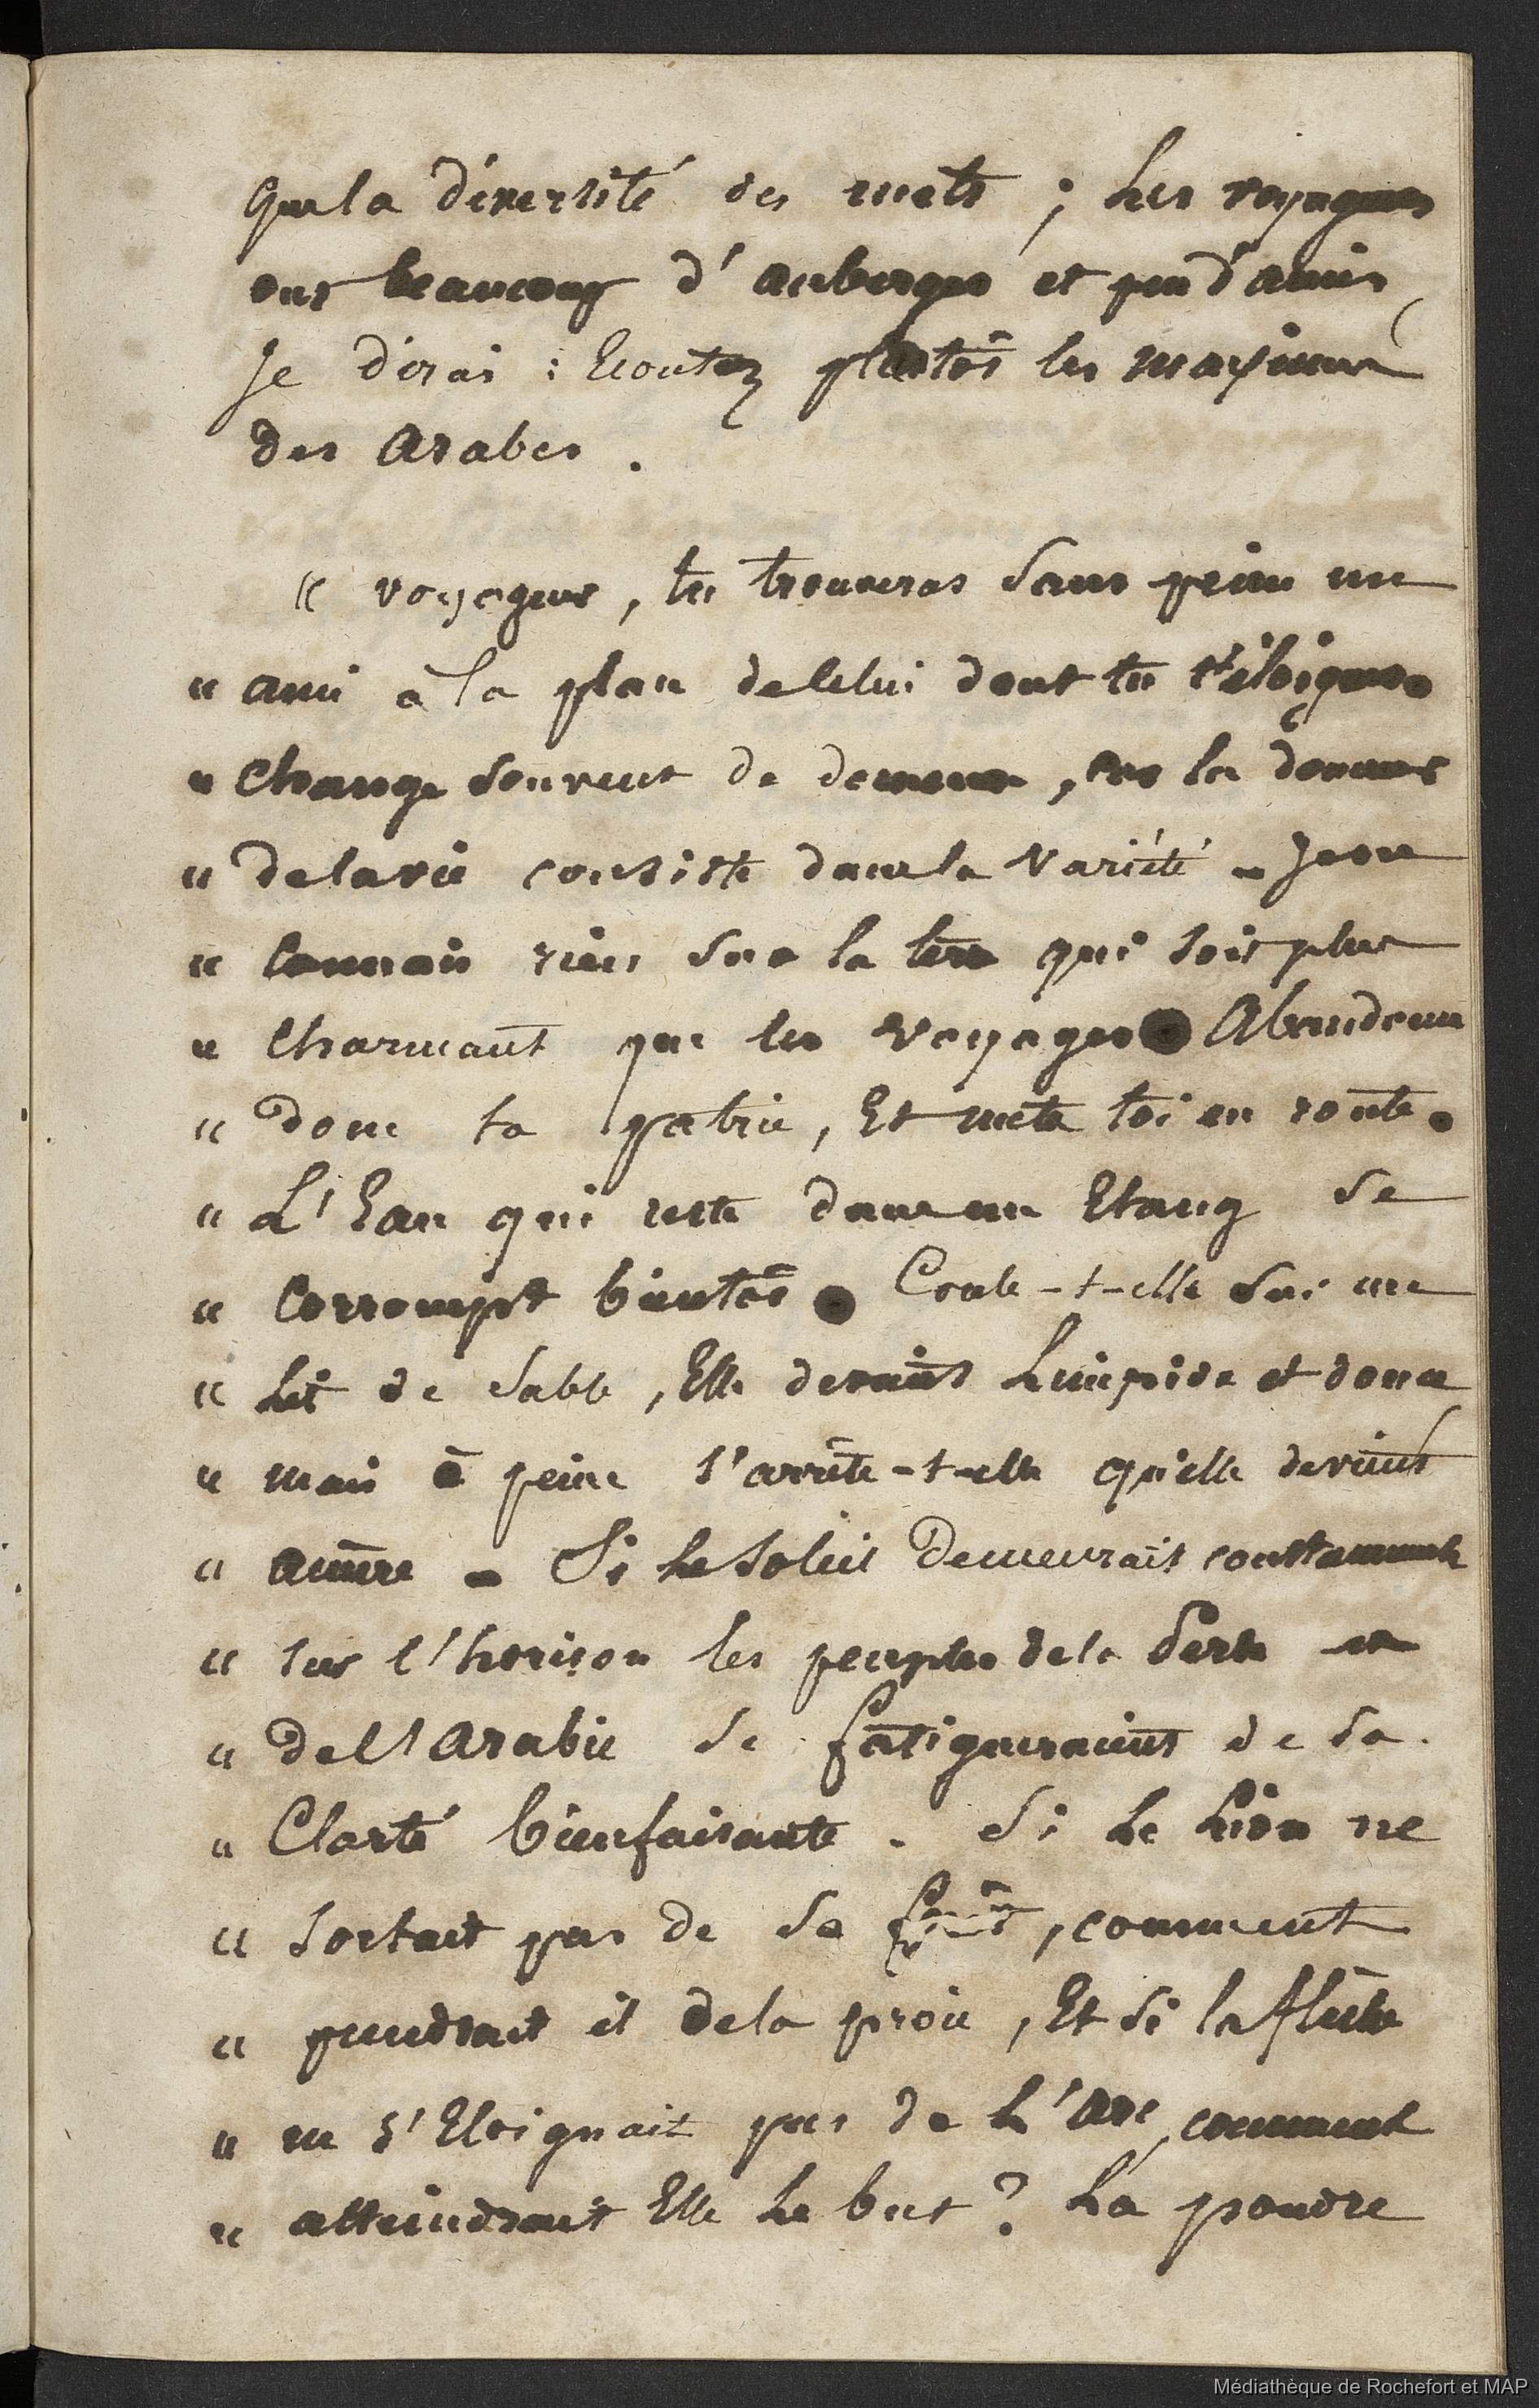 que la diversité des mets ; Les voyageurs
ont beaucoup d'auberges et peu d'amis,
Je dirai : Ecoutez plutôt les maximes
des Arabes.
« voyageur, tu trouveras sans peine un
« ami à la place de celui dont tu t'éloignes
« Change souvent de demeure, car la douceur
« de la vie consiste dans la variété - Je ne
« connais rien sur la terre qui soit plus
« Charmant que les voyages. Abandonne
« donc ta patrie, Et mets toi en route.
« L'Eau qui reste dans un Etang se
« Corrompt bientôt. Coule-t-elle sur un
« Lit de Sable, Elle devient Limpide et douce
« mais à peine s'arrête-t-elle qu'elle devient
« amère - Si Le Soleil Demeurait constamment
« sur l'horison les peuples de la Perse et
« De l'Arabie se fatigueraient de sa
« Clarté bienfaisante. Si Le Lion ne
« Sortait pas de Sa forêt, comment
« prendrait il de la proie, Et Si la flèche
« ne s'Eloignait pas de L'Arc, comment
« atteindrait Elle Le but ? La poudre
Médiathèque de Rochefort et MAP